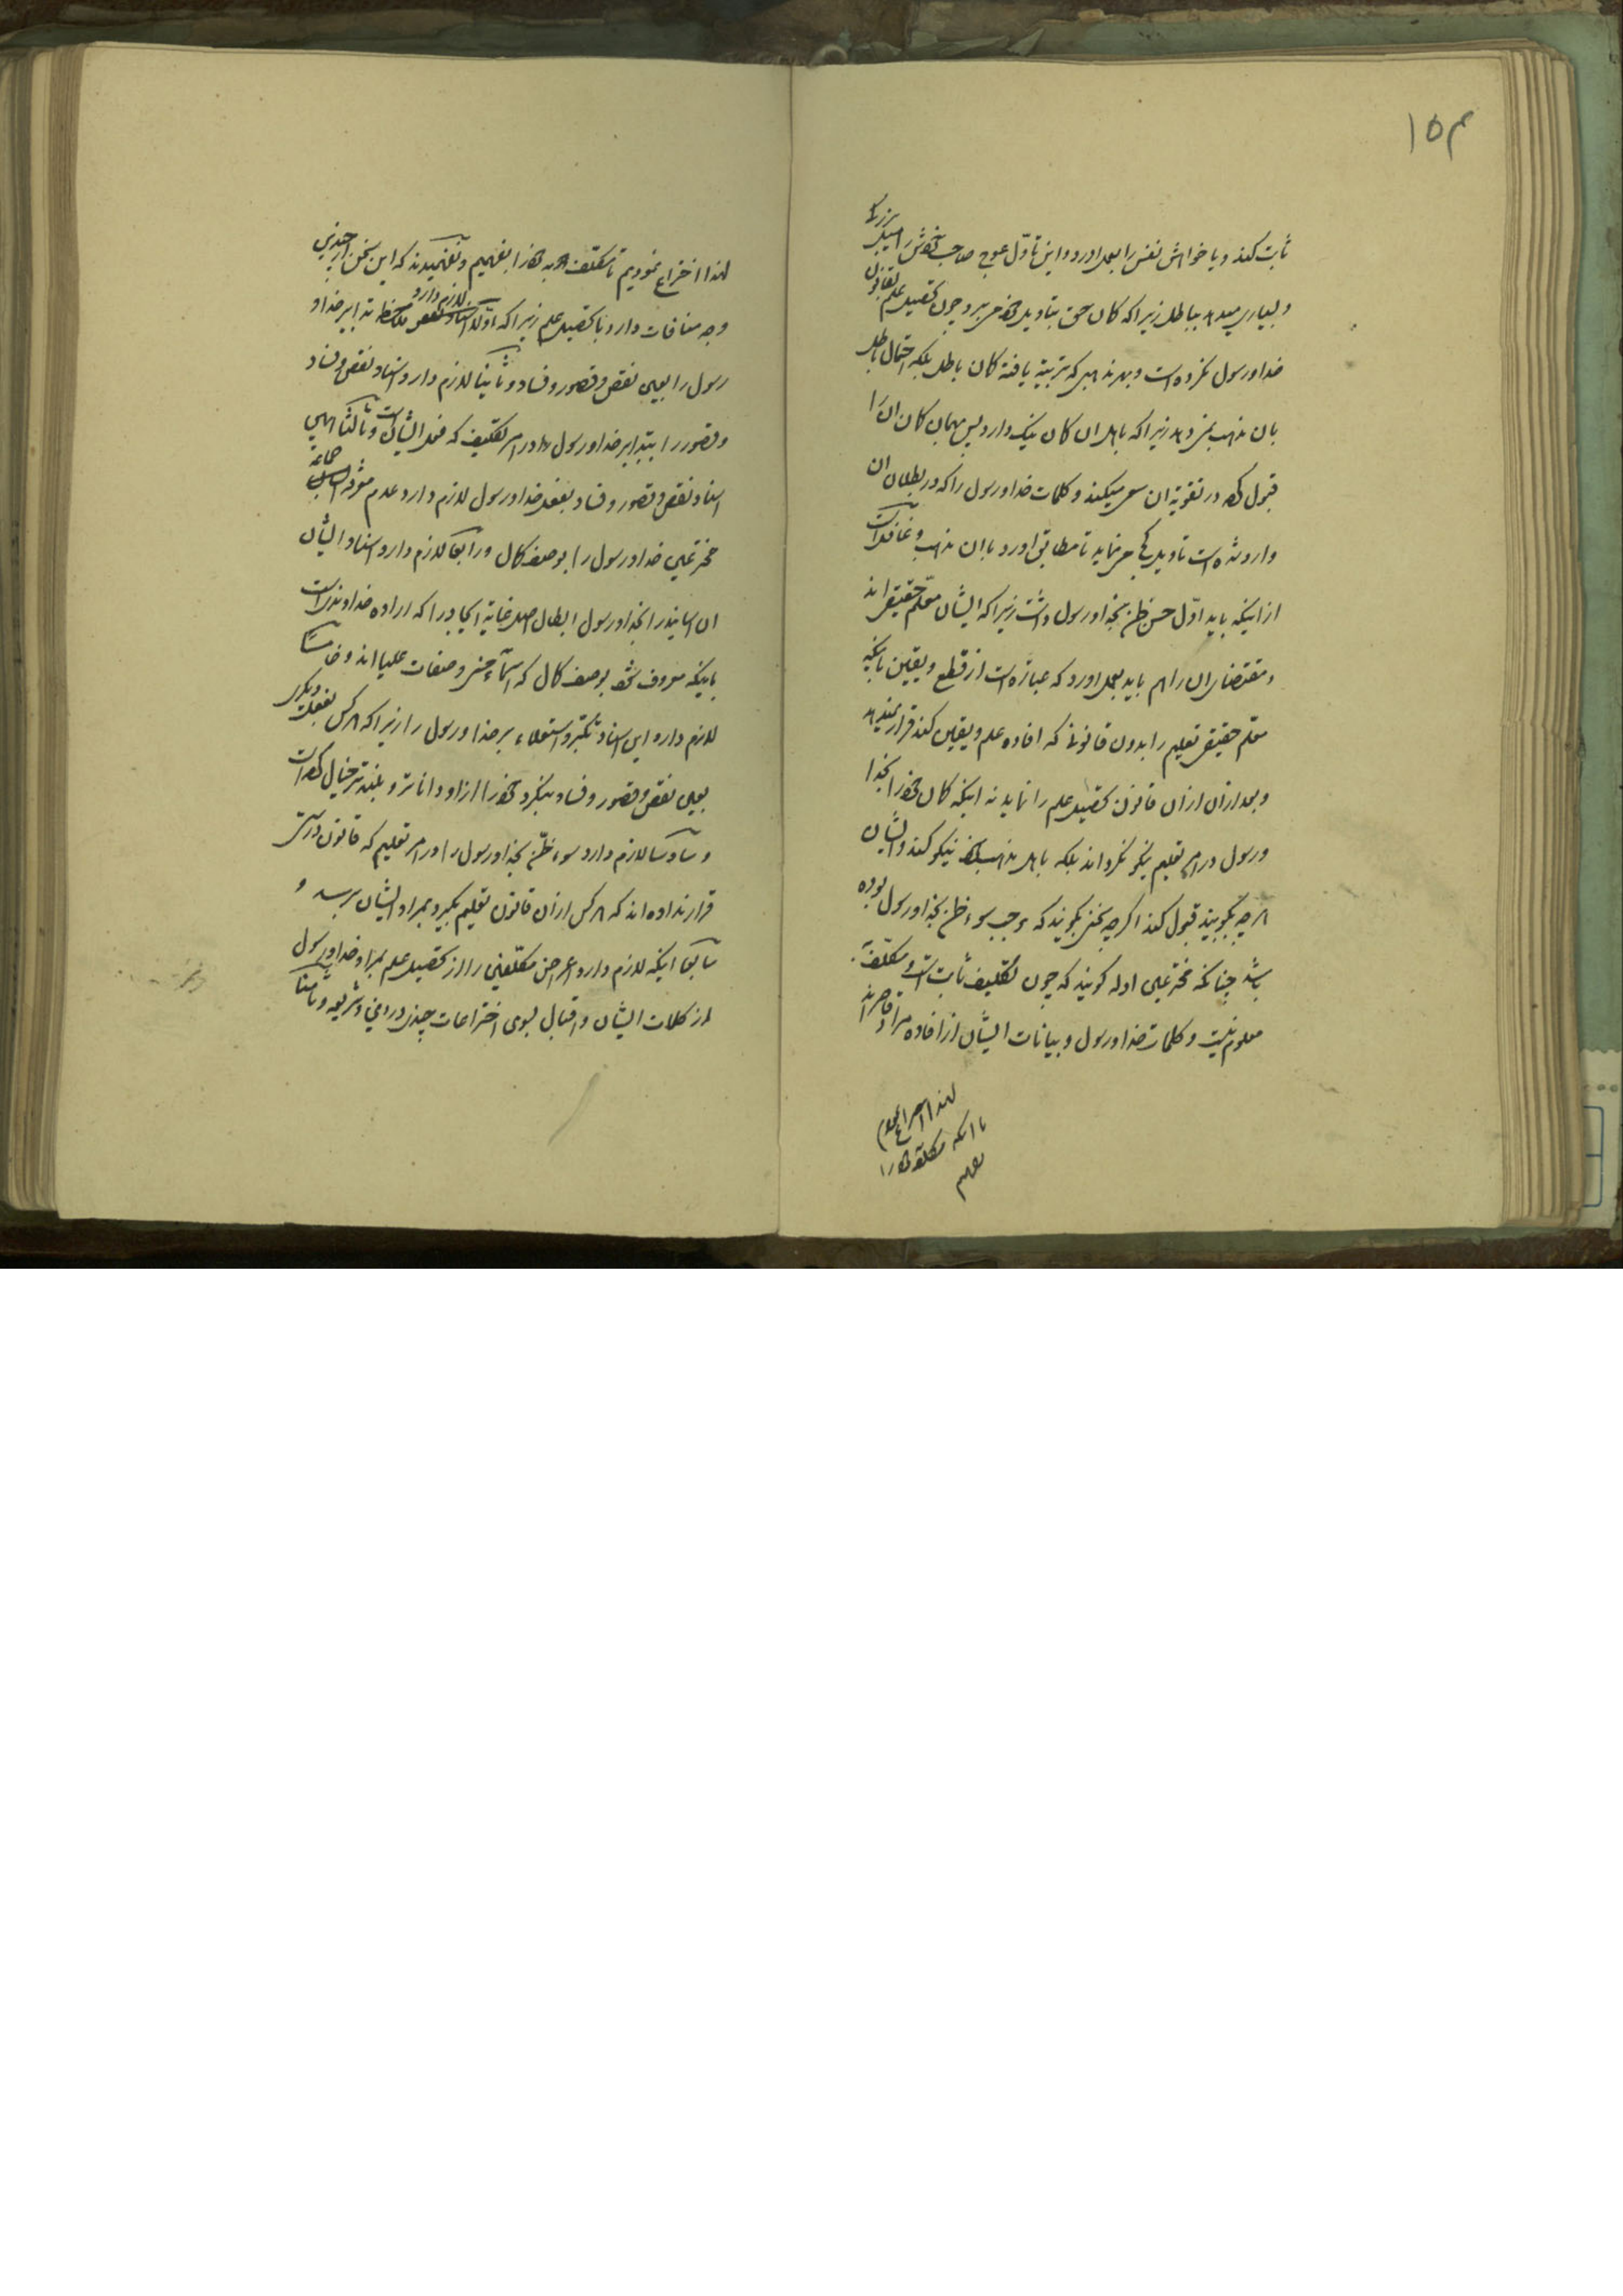 ۱۵۳
ثابت کند و یا خواهش نفس را بعمل اورد و این تاول عوج صاحب خودش را میبرد
و بسیاری میدهد بباطل زیرا که کمان حق بتاویل خود می برد و چون تحصیل علم بقانون
خدا و رسول نکرده است و بهر مذهبی که تربیة یافته کمان باطل بلکه احتمال باطل
بان مذهب نمی دهد زیرا که باهل ان کمان نیک دارد پس بهمان کمان ان را
قبول کرده در تقویة ان سعی میکند و کلمات خدا و رسول را که در بطلان ان
وارد شده است تاویل کج می نماید تا مطابق اورد با ان مذهب و غافل است
از اینکه باید اول حسن ظن بخدا و رسول داشت زیرا که ایشان معلم حقیقی اند
و مقتضای ان را هم باید بعمل اورد که عبارة است از قطع و یقین باینکه
معلم حقیقی تعلیم را بدون قانونی که افاده علم و یقین کند قرار نمیدهد
و بعد از ان از ان قانون تحصیل علم را نماید نه اینکه کمان خود را بخدا
و رسول در امر تعلیم نیکو نکرداند بلکه باهل مذهب نیکو کند و ایشان
هر چه بگویند قبول کند اگر چه سخنی بگویند که موجب سوء ظن بخدا و رسول بوده
باشد چنانکه مخترعین ادله گویند که چون تکلیف ثابت است و مکلف به
معلوم نیست و کلمات خدا و رسول و بیانات ایشان از افاده مراد قاصر اند
لهذا اختراع نمودیم
تا انکه مکلف به خود را
بفهمیم
لهذا اختراع نمودیم تا مکلف به خود را بفهمیم و نفهمیدند که این سخن از چندین
وجه منافات دارد با تحصیل علم زیرا که اولا لازم دارد تدابیر خدا و
رسول را بعین نقص و قصور و فساد و ثانیا لازم دارد اسناد نقص و فساد
و قصور را بتدابیر خدا و رسول در امر تکلیف که فعل ایشان است و ثالثا همین
اسناد نقص و قصور و فساد بفعل خدا و رسول لازم دارد عدم معرفة
مخترعین خدا و رسول را بوصف کمال و رابعا لازم دارد اسناد ایشان
ان اسانید را بخدا و رسول ابطال اصل غایة ایجاد را که اراده خداوند است
باینکه معروف شود بوصف کمال که اسماء حسنی و صفات علیا اند و خامسا
لازم دارد این اسناد تکبر و استعلاء بر خدا و رسول را زیرا که هر کس بفعل دیگری
بعین نقص و قصور و فساد بنگرد خود را از او داناتر و بلندتر خیال کرده است
و سادسا لازم دارد سوء ظن بخدا و رسول را در امر تعلیم که قانون درستی
قرار نداده اند که هر کس از ان قانون تعلیم بگیرد بمراد ایشان برسد و
سابعا اینکه لازم دارد اعراض مکلفین را از تحصیل علم بمراد خدا و رسول
از کلمات ایشان و اقبال بسوی اختراعات چندین و ثامنا